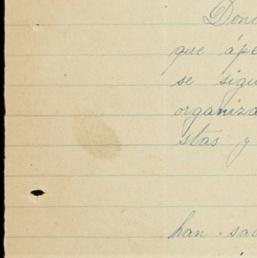 Dond
que ápe
se sigu
organiza
stas y
han sa